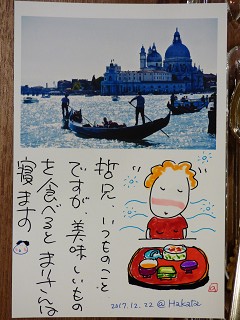 哲兄、いつものこと
ですが、美味しいもの
を食べるとまりさんは
寝ますの
2017.12.22 @ Hakata